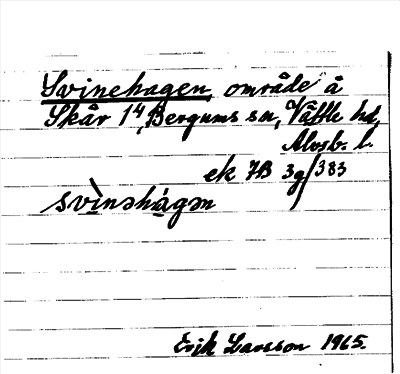 Svinehagen, område å
Skår 1⁴, Bergums sn, Vättle hd,
Älvsb. l.
ek 7B 3g/383
svìnəhágən
Erik Larsson 1965.